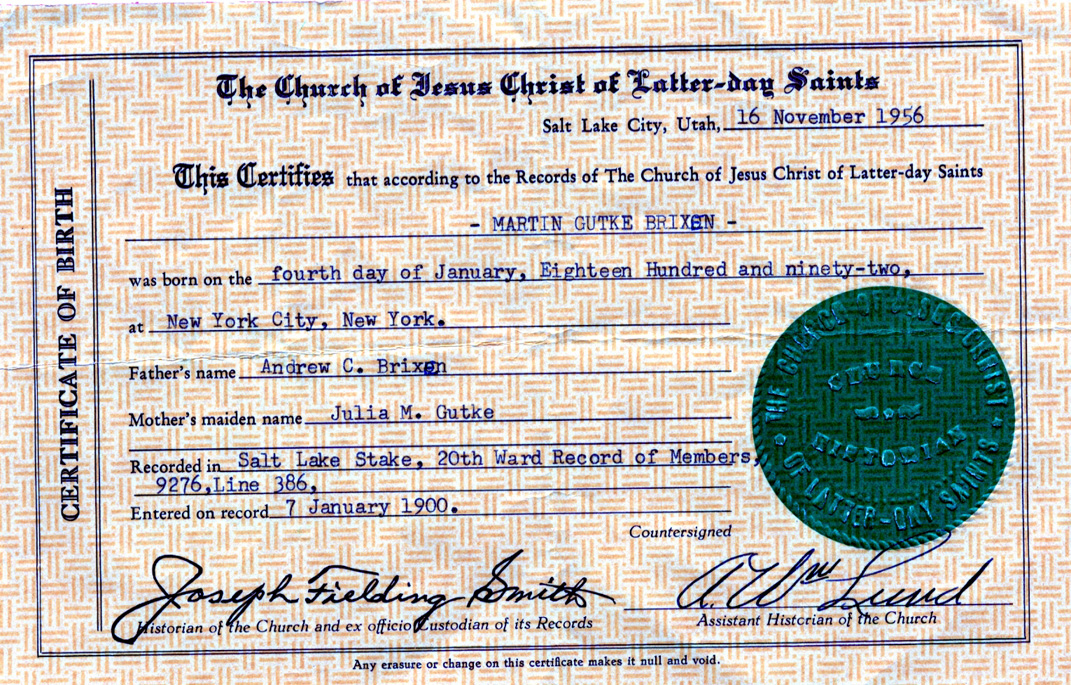 The Church of Jesus Christ of Latter-day Saints
Salt Lake City, Utah, 16 November 1956
This Certifies that according to the Records of The Church of Jesus Christ of Latter-day Saints
- MARTIN GUTKE BRIXEN -
was born on the fourth day of January, Eighteen Hundred and ninety-two,
at New York City, New York.
Father's name Andrew C. Brixen
Mother's maiden name Julia M. Gutke
Recorded in Salt Lake Stake, 20th Ward Record of Members,
9276,Line 386,
Entered on record 7 January 1900.
Countersigned
Joseph Fielding Smith
A. Wm Lund
Historian of the Church and ex officio Custodian of its Records
Assistant Historian of the Church
Any erasure or change on this certificate makes it null and void.
CERTIFICATE OF BIRTH
THE CHURCH OF JESUS CHRIST
OF LATTER-DAY SAINTS
CHURCH
HISTORIAN